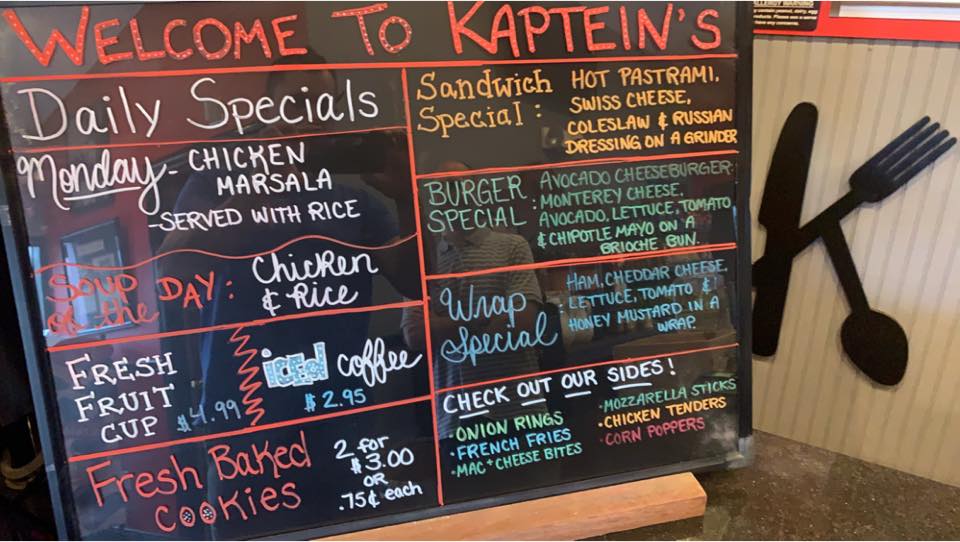 WELCOME TO KAPTEIN'S
Daily Specials
Monday - CHICKEN
MARSALA
-SERVED WITH RICE
SOUP of the DAY: Chicken
& Rice
FRESH
FRUIT
CUP $4.99
iced coffee
$2.95
Fresh Baked
cookies
2 for
$3.00
OR
.75¢ each
Sandwich
Special:
HOT PASTRAMI,
SWISS CHEESE,
COLESLAW & RUSSIAN
DRESSING ON A GRINDER
BURGER
SPECIAL:
AVOCADO CHEESEBURGER-
MONTEREY CHEESE,
AVOCADO, LETTUCE, TOMATO
& CHIPOTLE MAYO ON A
BRIOCHE BUN.
Wrap
Special:
HAM, CHEDDAR CHEESE,
LETTUCE, TOMATO &
HONEY MUSTARD IN A
WRAP.
CHECK OUT OUR SIDES!
·ONION RINGS
·FRENCH FRIES
·MAC+CHEESE BITES
·MOZZARELLA STICKS
·CHICKEN TENDERS
·CORN POPPERS